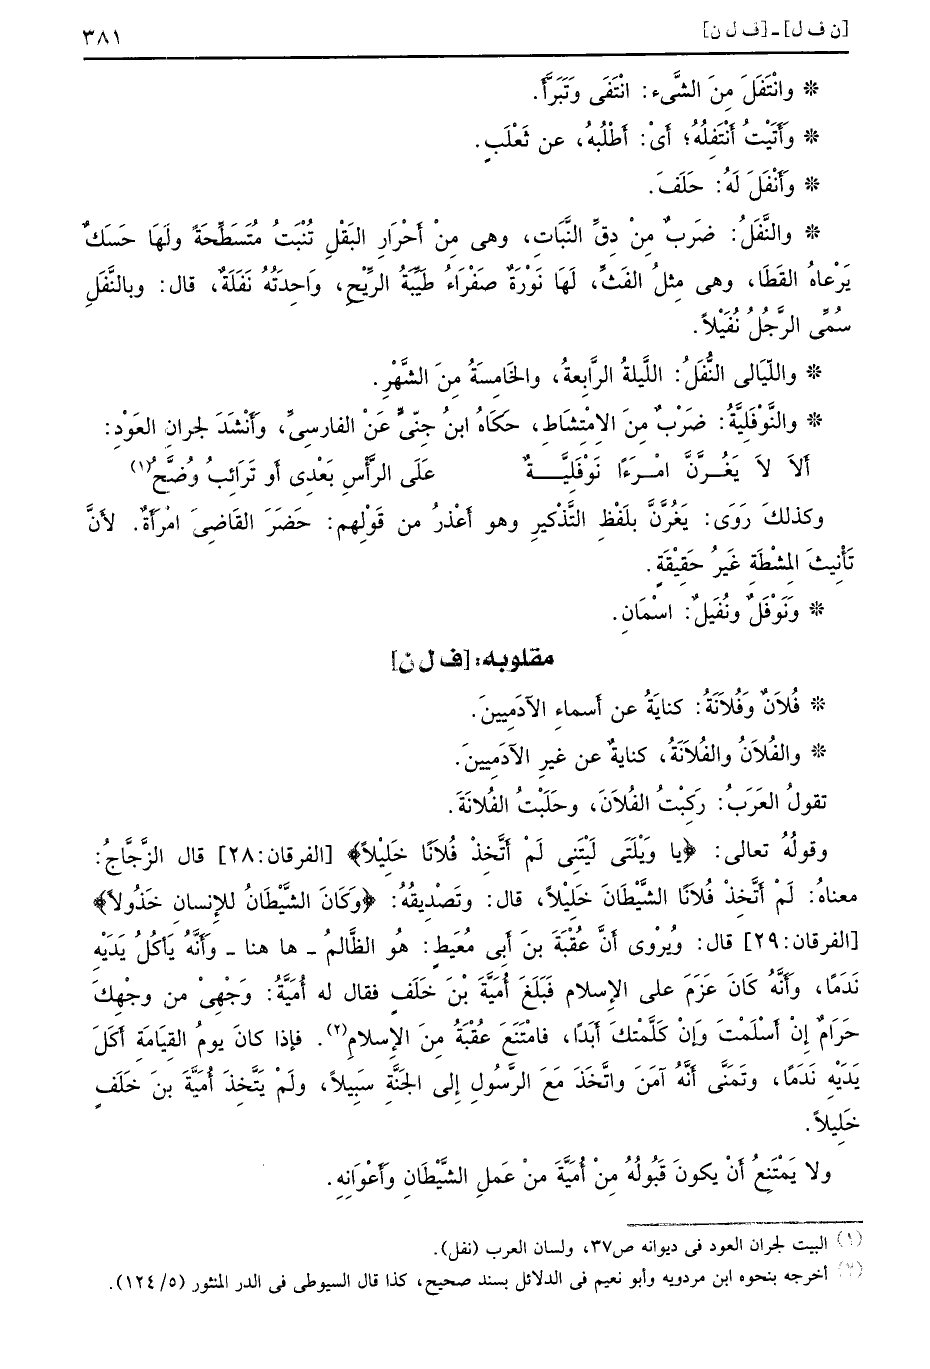 [ن ف ل] ـ [ف ل ن]
٣٨١
* وانْتَفَلَ مِنَ الشَّىء: انْتَفَى وَتَبَرَّأَ.
* وَأَتَيْتُ أَنْتَفِلُهُ؛ أىْ: أَطْلُبُهُ، عن ثَعْلَبٍ.
* وَأَنْفَلَ لَهُ: حَلَفَ.
* والنَّفَلُ: ضَربٌ مِنْ دِقِّ النَّبَاتِ، وهى مِنْ أَحْرَارِ البَقْلِ تُنْبَتُ مُتَسَطِّحَةً ولَهَا حَسَكٌ
يَرْعاهُ القَطَا، وهى مثلُ القَثِّ، لَهَا نَوْرَةٌ صَفْرَاءُ طَيِّبَةُ الرِّيْحِ، وَاحِدَتُهُ نَفَلَةٌ، قال: وبالنَّفَلِ
سُمِّى الرَّجُلُ نُفَيْلاً.
* واللّيَالى النُّفَلُ: اللَّيلةُ الرَّابعةُ، والخَامِسَةُ مِنَ الشَّهْرِ.
* والنَّوْفَلِيَّةُ: ضَرْبٌ مِنَ الامْتشَاطِ، حكَاهُ ابنُ جنّىٍّ عَنْ الفارسىِّ، وأَنْشَدَ لجرانِ العَوْدِ:
أَلاَ لاَ يَغُـرَّنَّ امْـرَءًا نَوْفَلِيَّـــةٌ عَلَى الرَّأْسِ بَعْدِى أو تَرَائبُ وُضَّحُ(١)
وكذلكَ رَوَى: يَغُرَّنَّ بلَفظِ التَّذكيرِ وهو أَعْذرُ من قَوْلهم: حَضَرَ القَاضىَ امْرَأَةٌ. لأنَّ
تَأْنيثَ المِشْطَةِ غَيرُ حَقِيْقَةٍ.
* وَنَوْفَلٌ ونُفَيلٌ: اسْمَانِ.
مقلوبه: [ف ل ن]
* فُلاَنٌ وَفُلاَنَةُ: كنايَةُ عن أَسماءِ الآدَميينَ.
* والفُلاَنُ والفُلاَنَةُ، كنايةٌ عن غيرِ الآدَميينَ.
تقولُ العَرَبُ: رَكِبْتُ الفُلاَنَ، وحلَبْتُ الفُلاَنَةَ.
وقولُهُ تعالى: ﴿يا وَيْلَتَى لَيْتَنِى لَمْ أَتَّخِذ فُلاَنًا خَلِيْلاً﴾ [الفرقان:٢٨] قال الزَّجَّاجُ:
معناهُ: لَمْ أَتَّخِذ فُلاَنًا الشَّيْطَانَ خَلِيْلاً، قال: وتَصْديقُهُ: ﴿وَكَانَ الشَّيْطَانُ للإنسانِ خَذُولاً﴾
[الفرقان:٢٩] قال: ويُرْوى أنَّ عُقْبَةَ بنَ أبى مُعَيطٍ: هُو الظَّالمُ ـ ها هنا ـ وأَنَّهُ يَأكُلُ يَدَيْهِ
نَدَمًا، وأَنَّهُ كَانَ عزَمَ على الإسلام فَبَلَغَ أُمَيَّةَ بْنَ خلَفٍ فقال له أُمَيَّةُ: وَجْهِىْ من وجْهِكَ
حَرَامٌ إنْ أَسْلَمْتَ وَإنْ كَلَّمْتكَ أَبَدًا، فامْتَنَعَ عُقْبَةُ منَ الإسلام(٢). فإذا كانَ يومُ القيَامَةِ أَكَلَ
يَدَيْهِ نَدَمًا، وتَمَنَّى أنَّهُ آمَنَ واتَّخَذَ مَعَ الرَّسُولِ إلى الجَنَّةِ سَبِيلاً، ولَمْ يَتَّخِذَ أُمَيَّةَ بنَ خَلَفٍ
خَلِيلاً.
ولا يَمْتَنِعُ أنْ يكونَ قَبُولُهُ مِنْ أُمَيَّةَ منْ عَملِ الشَّيْطَانِ وأَعْوَانِهِ.
(١) البيت لجران العود فى ديوانه ص٣٧، ولسان العرب (نفل).
(٢) أخرجه بنحوه ابن مردويه وأبو نعيم فى الدلائل بسند صحيح، كذا قال السيوطى فى الدر المنثور (٥/ ١٢٤).